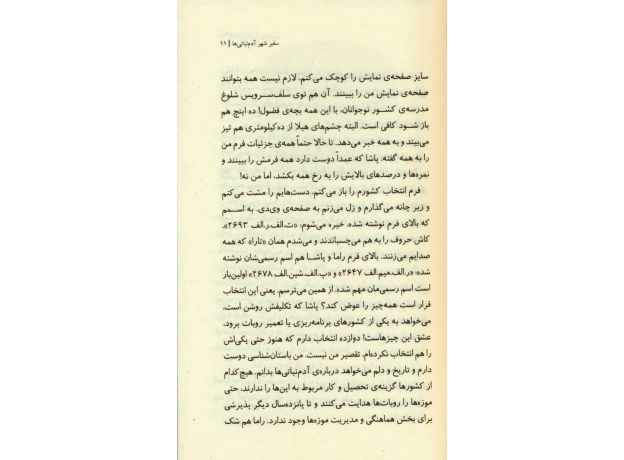 سفیر شهر آدم‌نباتی‌ها | ۱۱
سایز صفحه‌ی نمایش را کوچک می‌کنم. لازم نیست همه بتوانند
صفحه‌ی نمایش من را ببینند. آن هم توی سلف‌سرویس شلوغ
مدرسه‌ی کشور نوجوانان، با این همه بچه‌ی فضول! ده اینچ هم
باز شود کافی است. البته چشم‌های هیلا از ده‌کیلومتری هم تیز
می‌بیند و به همه خبر می‌دهد. تا حالا حتماً همه‌ی جزئیات فرم من
را به همه گفته. پاشا که عمداً دوست دارد همه فرمش را ببینند و
نمره‌ها و درصدهای بالایش را به رخ همه بکشد، اما من نه!
فرم انتخاب کشورم را باز می‌کنم. دست‌هایم را مشت می‌کنم
و زیر چانه می‌گذارم و زل می‌زنم به صفحه‌ی وی‌دی. به اسمم
که بالای فرم نوشته شده، خیره می‌شوم: «ت.الف.ر.الف ۲۶۹۳».
کاش حروف را به هم می‌چسباندند و می‌شدم همان «تارا» که همه
صدایم می‌زنند. بالای فرم راما و پاشا هم اسم رسمی‌شان نوشته
شده: «ر.الف.میم.الف ۲۶۴۷» و «پ.الف.شین.الف ۲۶۷۸». اولین‌بار
است اسم رسمی‌مان مهم شده. از همین می‌ترسم. یعنی این انتخاب
قرار است همه‌چیز را عوض کند؟ پاشا که تکلیفش روشن است.
می‌خواهد به یکی از کشورهای برنامه‌ریزی یا تعمیر روبات برود.
عشق این چیزهاست! دوازده انتخاب دارم که هنوز حتی یکی‌اش
را هم انتخاب نکرده‌ام. تقصیر من نیست. من باستان‌شناسی دوست
دارم و تاریخ و دلم می‌خواهد درباره‌ی آدم‌نباتی‌ها بدانم. هیچ‌کدام
از کشورها گزینه‌ی تحصیل و کار مربوط به این‌ها را ندارند. حتی
موزه‌ها را روبات‌ها هدایت می‌کنند و تا پانزده‌سال دیگر پذیرشی
برای بخش هماهنگی و مدیریت موزه‌ها وجود ندارد. راما هم شک